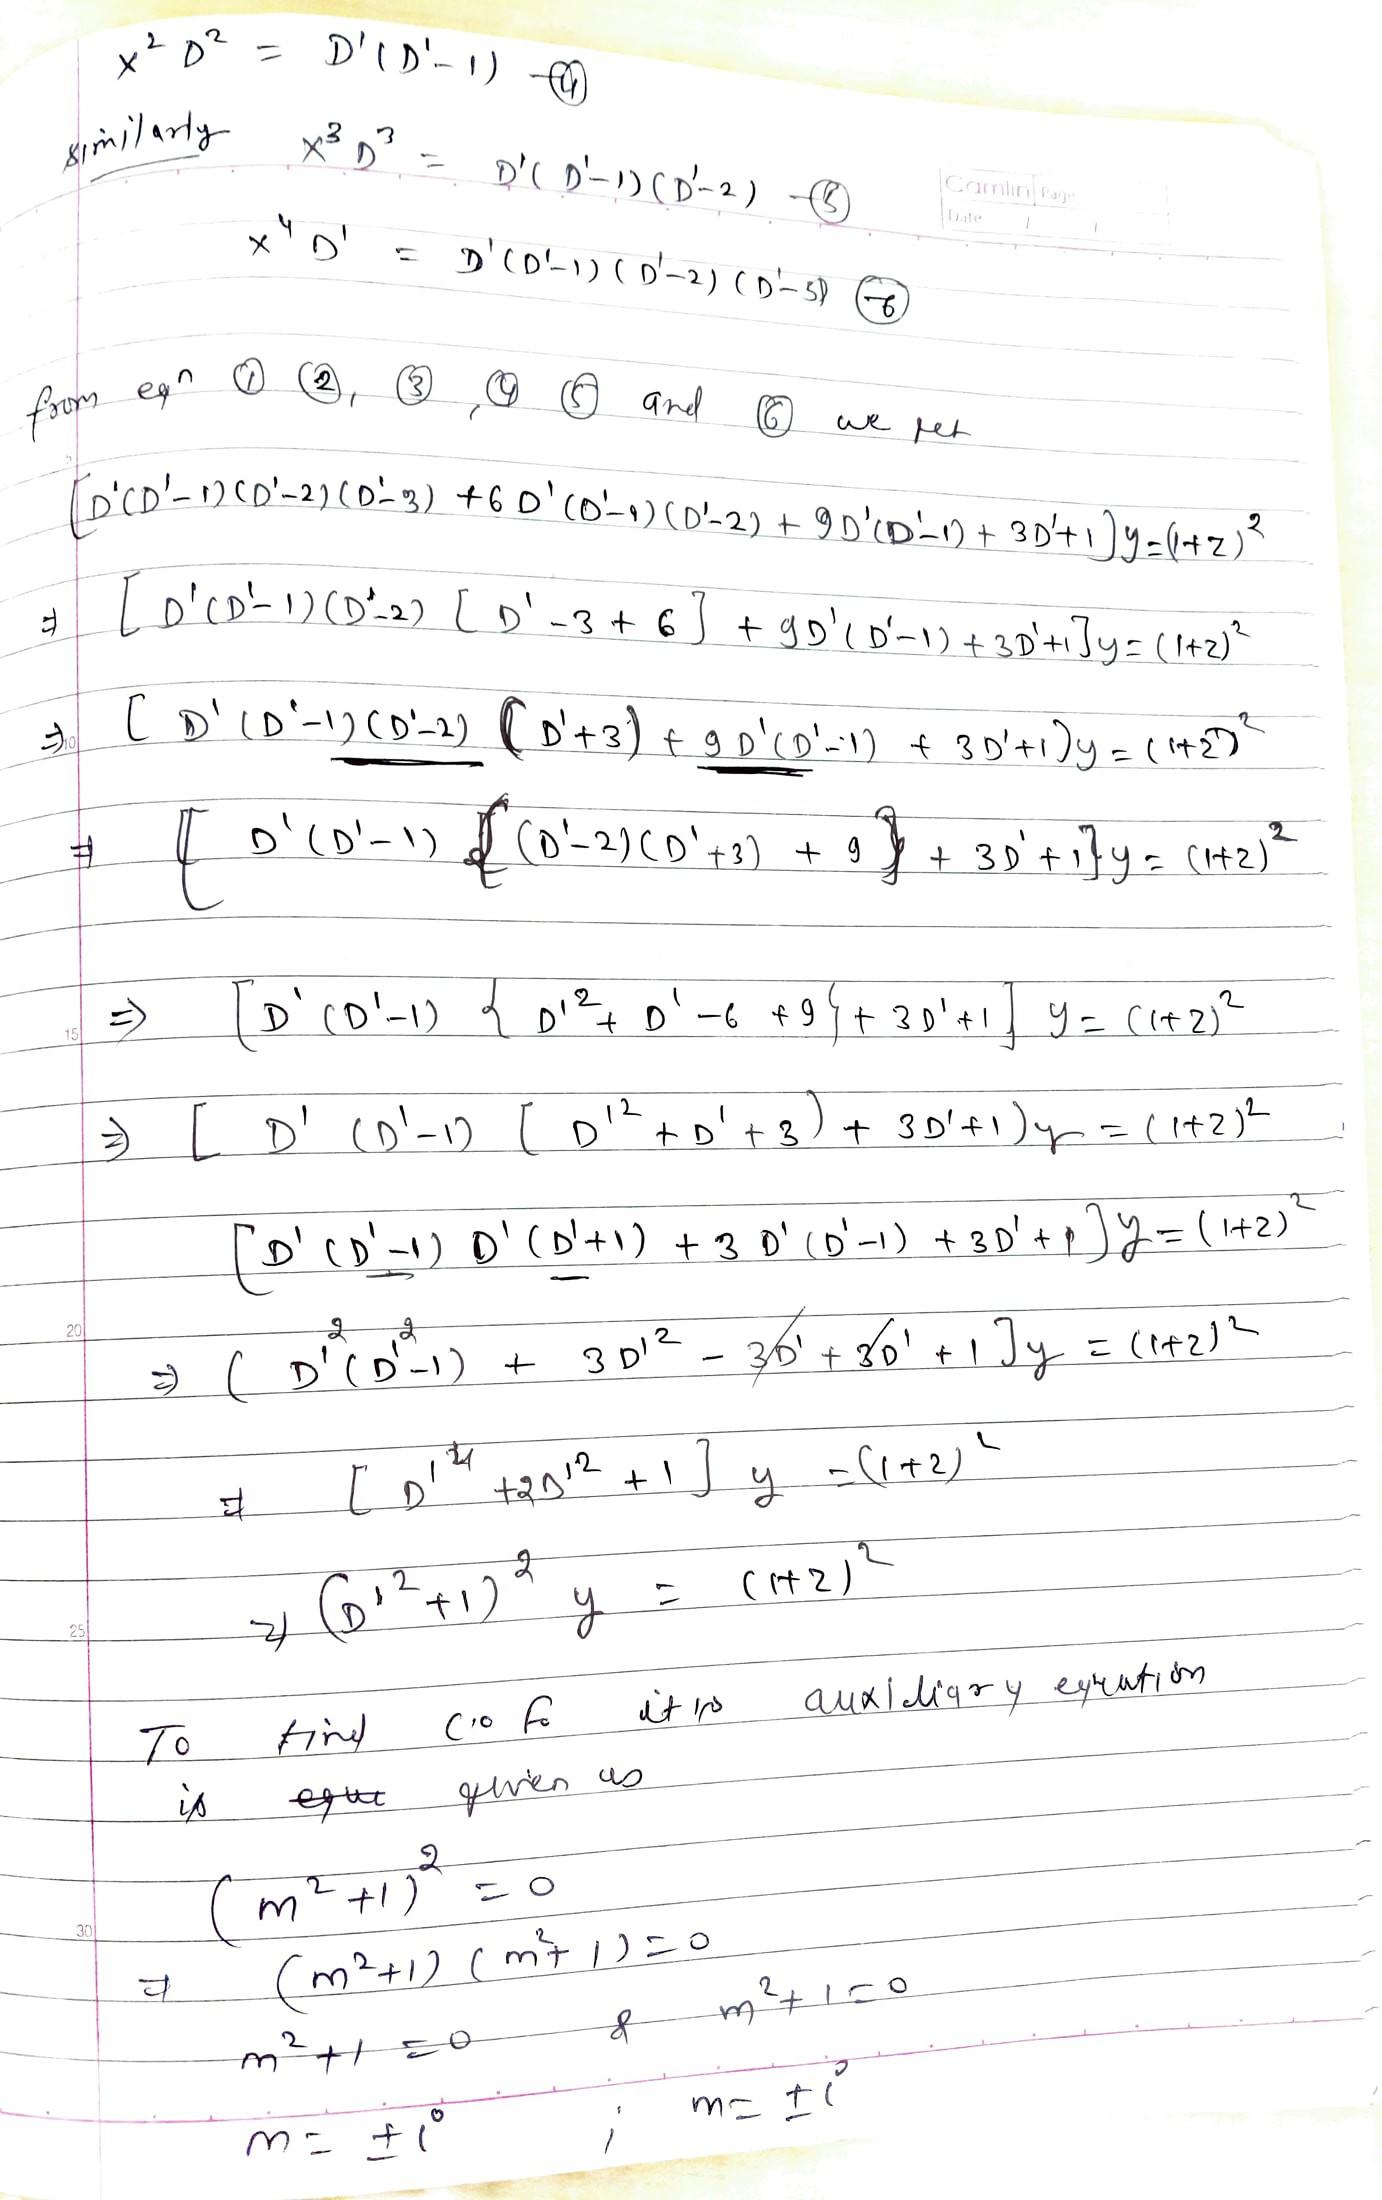 x² D² = D'(D'-1) -④
similarly x³ D³ = D'(D'-1)(D'-2) -⑤
Camlin Page
Date / /
x⁴ D' = D'(D'-1)(D'-2)(D'-3) -⑥
from eqn ① ②, ③, ④ ⑤ and ⑥ we get
[D'(D'-1)(D'-2)(D'-3) + 6 D'(D'-1)(D'-2) + 9D'(D'-1) + 3D'+1]y=(1+z)²
⇒ [D'(D'-1)(D'-2) [D'-3+6] + 9D'(D'-1) + 3D'+1]y = (1+z)²
10
⇒ [D'(D'-1)(D'-2) (D'+3) + 9D'(D'-1) + 3D'+1)y = (1+z)²
⇒ [D'(D'-1) {(D'-2)(D'+3) + 9} + 3D'+1}y = (1+z)²
15
⇒ [D'(D'-1) {D'²+D'-6+9} + 3D'+1] y = (1+z)²
⇒ [D'(D'-1) [D'²+D'+3) + 3D'+1)y = (1+z)²
[D'(D'-1) D'(D'+1) + 3 D'(D'-1) + 3D'+1]y = (1+z)²
20
⇒ (D'²(D'²-1) + 3D'² - 3D' + 3D' + 1]y = (1+z)²
⇒ [D'⁴ +2D'² +1] y = (1+z)²
25
⇒ (D'²+1)² y = (1+z)²
To find C.F. it is auxiliary equation
is given as
(m²+1)² = 0
30
⇒ (m²+1)(m²+1)=0
m²+1=0 & m²+1=0
m= ±i ; m= ±i